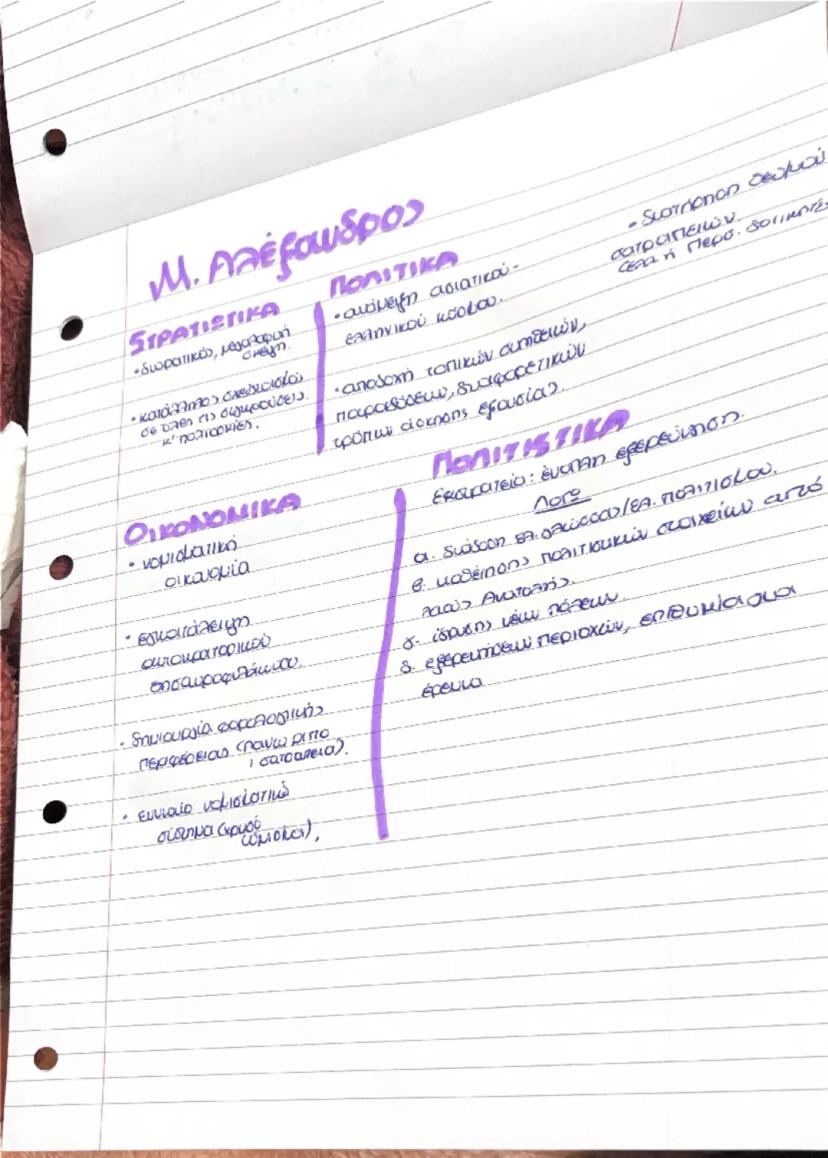 Μ. Αλέξανδρος
ΣΤΡΑΤΙΩΤΙΚΑ
• διορατικός, μεγαλοφυή
σκέψη.
• κατάλληλος σχεδιασμός
σε όλες τις συγκρούσεις
κ' πολιορκίες.
ΠΟΛΙΤΙΚΑ
• ανάμειξη ασιατικού-
ελληνικού κόσμου.
• αποδοχή τοπικών συνηθειών,
παραδόσεων, διαφορετικών
τρόπων άσκησης εξουσίας.
• διατήρηση θεσμού
σατραπειών
(έλλ ή Περσ. διοικητές
ΟΙΚΟΝΟΜΙΚΑ
• νομισματική
οικονομία
• εγκατάλειψη
αυτοκρατορικού
θησαυροφυλάκιου.
• δημιουργία φορολογικής
περιφέρειας (πάνω
1 σατραπεία).
• ενιαίο νομισματικό
σύστημα (χρυσό
νόμισμα).
ΠΟΛΙΤΙΣΤΙΚΑ
Εκστρατεία: ένοπλη εξερεύνηση.
Λόγο
α. διάδοση ελ. γλώσσας/ελ. πολιτισμού.
β. πολιτιστικών στοιχείων από
λαούς Ανατολής.
γ. ίδρυσης νέων πόλεων
δ. εξερευνήσεων περιοχών, επιθυμία για
έρευνα